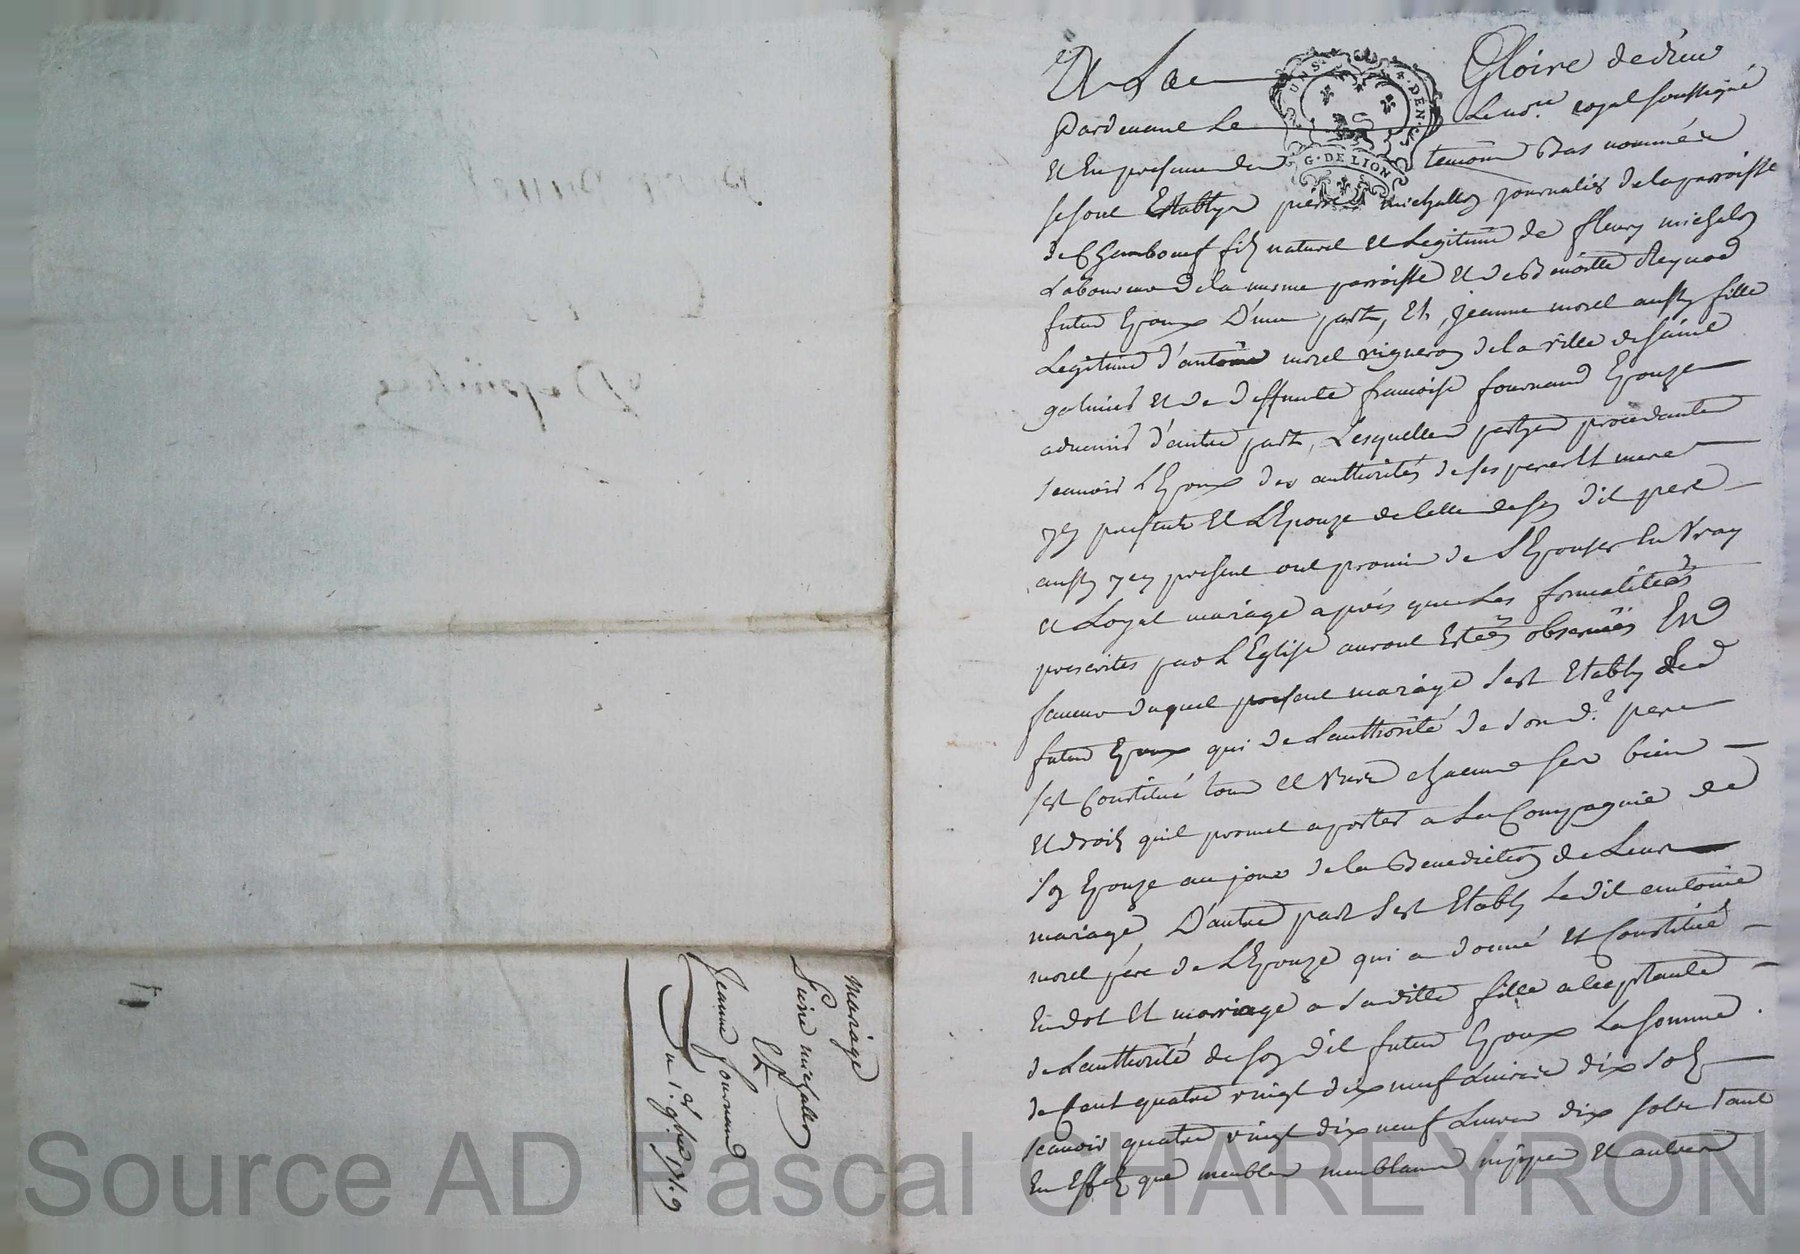 A La Gloire de dieu
pardevant Le No.re royal soussigné
et En presence des temoins Bas nommées
se sont Establys pierre michallon journalier de la parroisse
de Chambœuf fils naturel et Legitime de fleury michalon
Laboureur de la mesme parroisse et de Benoitte Reynod
futur Epoux D'une part, Et, jeanne morel aussy fille
Legitime d'antoine morel vigneron de la ville de saint
galmier et de deffunte francoise fournand Epouze
advenir d'autre part, Lesquelles partyes procedantes
scavoir L'Epoux des authorités de ses pere et mere
yey presents et L'Epouze de Celle de son dit pere
aussy yey present ont promis de s'Epouser En Vray
et Loyal mariage après que Les formalitées
prescrites par L'Eglise auront Estées observées En
faveur duquel present mariage s'est Etably Led
futur Epoux qui de L'authorité de son d.t pere
s'est Constitué tous et Uns chacuns ses biens
et droits quil promet aporter a La Compagnie de
son Epouze au jour de la Benediction de Leur
mariage D'autre part s'est Etably Ledit antoine
morel père de L'Epouze qui a donné et Constitué
En dot et marriage a sa ditte fille aceptante
de L'authorité de son dit futur Epoux La somme
de Cent quatre vingt dix neuf Livres dix sols
scavoir quatre vingt dix neuf Livres dix sols tant
En Effets que meubles meublants nippes et autres
UNS. 4. DEN.
G. DE LION
mariage
Pierre michallon
Et
Jeanne fournand
du 1.er 9bre 1719
Source AD Pascal CHAREYRON